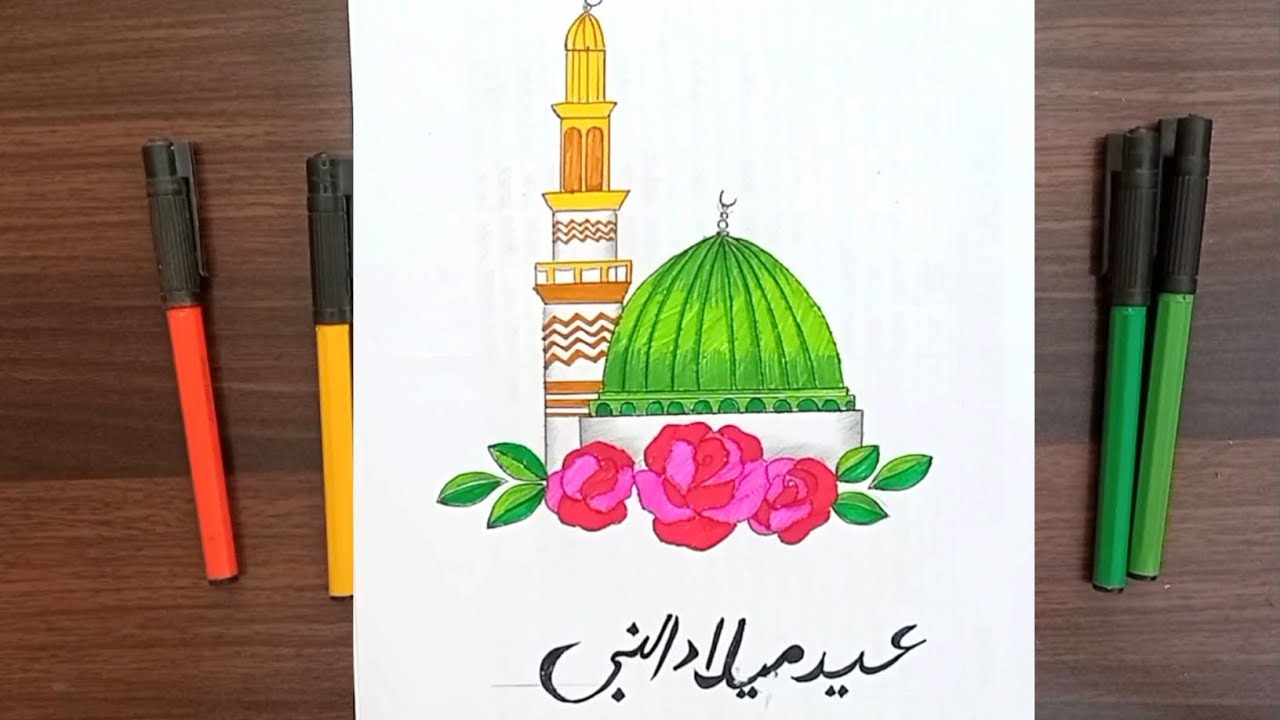 عید میلاد النبی